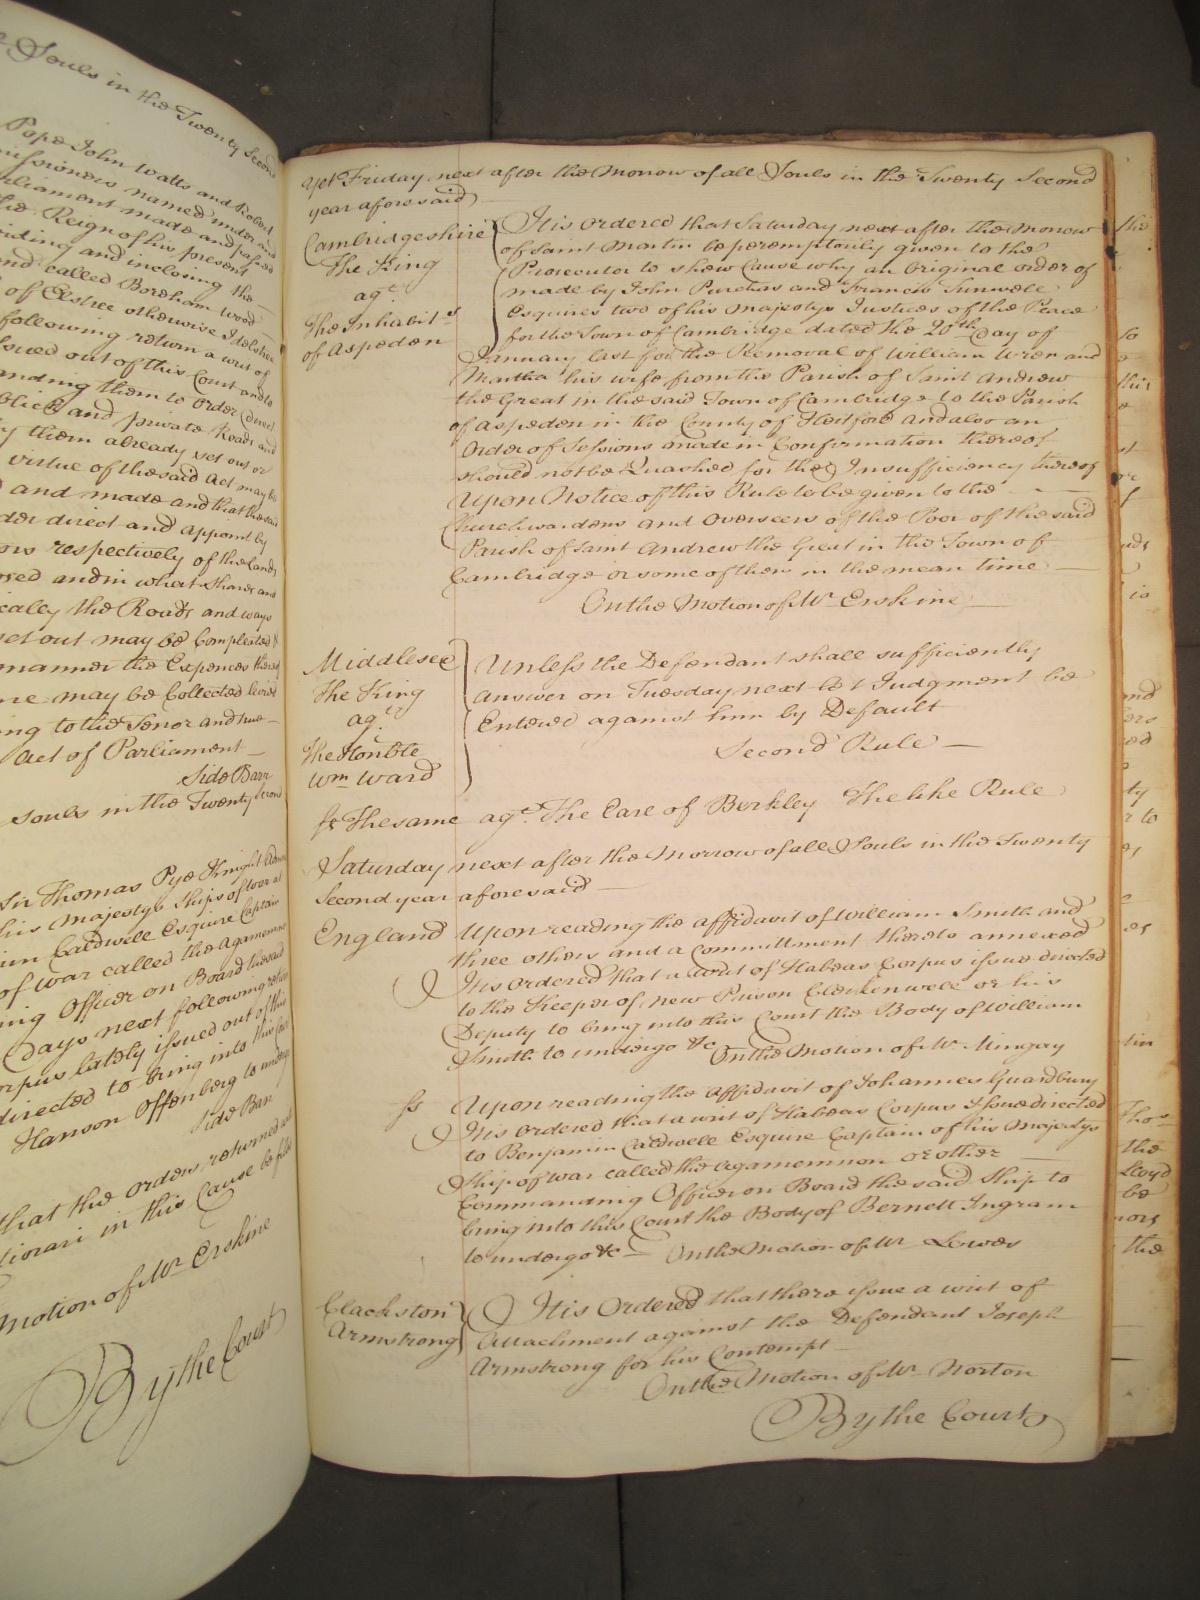 Souls in the Twenty Second
Pope John Watts and Robert
missioners named under and
rliament made and passed
the Reign of his present
viding and inclosing the
and called Boreham Wood
of Elstree otherwise Idelstree
following return a writ of
issued out of this Court and to
anding them to order direct
blick and private Roads and
y them already set out or
virtue of the said Act may be
and made and that the said
der direct and appoint by
ors respectively of the Lands
osed and in what Shares and
ically the Roads and ways
set out may be Compleated &
manner the Expences thereof
me may be Collected levied
ing to the Tenor and true
Act of Parliament
Side Barr
Souls in the Twenty Second
Sir Thomas Pye Knight Adm
his Majestys Ships of War at
min Caldwell Esquire Captain
of war called the Agamemnon
ing Officer on Board the said
Days next following return
orpus lately issued out of this
directed to bring into this Court
Hanson Offenberg to undergo
Side Bar
that the orders returned with
tiorari in this Cause be filed
Motion of Mr Erskine
By the Court
Yet Friday next after the Morrow of all Souls in the Twenty Second
year aforesaid
Cambridgeshire
The King
agt
The Inhabits
of Aspeden
It is ordered that Saturday next after the Morrow
of Saint Martin be peremptorily given to the
Prosecutor to shew Cause why an Original order of
made by John Purchas and Francis Tunwell
Esquires two of his Majestys Justices of the Peace
for the Town of Cambridge dated the 20th Day of
January last for the Removal of William Wren and
Martha his wife from the Parish of Saint Andrew
the Great in the said Town of Cambridge to the Parish
of Aspeden in the County of Hertford and also an
Order of Sessions made in Confirmation thereof
should not be Quashed for the Insufficiency thereof
Upon Notice of this Rule to be given to the
Churchwardens and Overseers of the Poor of the said
Parish of Saint Andrew the Great in the Town of
Cambridge or some of them in the mean time
On the Motion of Mr Erskine
Middlesex
The King
agt
The Honble
Wm Ward
Unless the Defendant shall sufficiently
answer on Tuesday next let Judgment be
Entered against him by Default
Second Rule
ss The same agt The Earl of Berkley The like Rule
Saturday next after the Morrow of all Souls in the Twenty
Second year aforesaid
England Upon reading the affidavit of William Smith and
three others and a Committment thereto annexed
It is ordered that a writ of Habeas Corpus issue directed
to the Keeper of New Prison Clerkenwell or his
Deputy to bring into this Court the Body of William
Smith to undergo &c On the Motion of Mr Mingay
ss Upon reading the affidavit of Johannes Guardbury
It is ordered that a writ of Habeas Corpus Issue directed
to Benjamin Caldwell Esquire Captain of his Majestys
Ship of war called the Agamemnon or other
Commanding Officer on Board the said Ship to
bring into this Court the Body of Bernett Ingram
to undergo &c On the Motion of Mr Lowes
Clackston
Armstrong
It is Ordered that there issue a writ of
Attachment against the Defendant Joseph
Armstrong for his Contempt
On the Motion of Mr Norton
By the Court